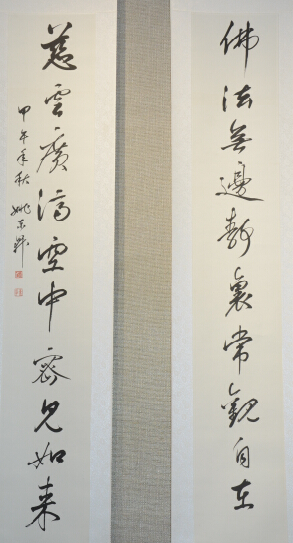 佛法無邊静裏常觀自在
慈雲廣濟空中密見如来
甲午年秋姚